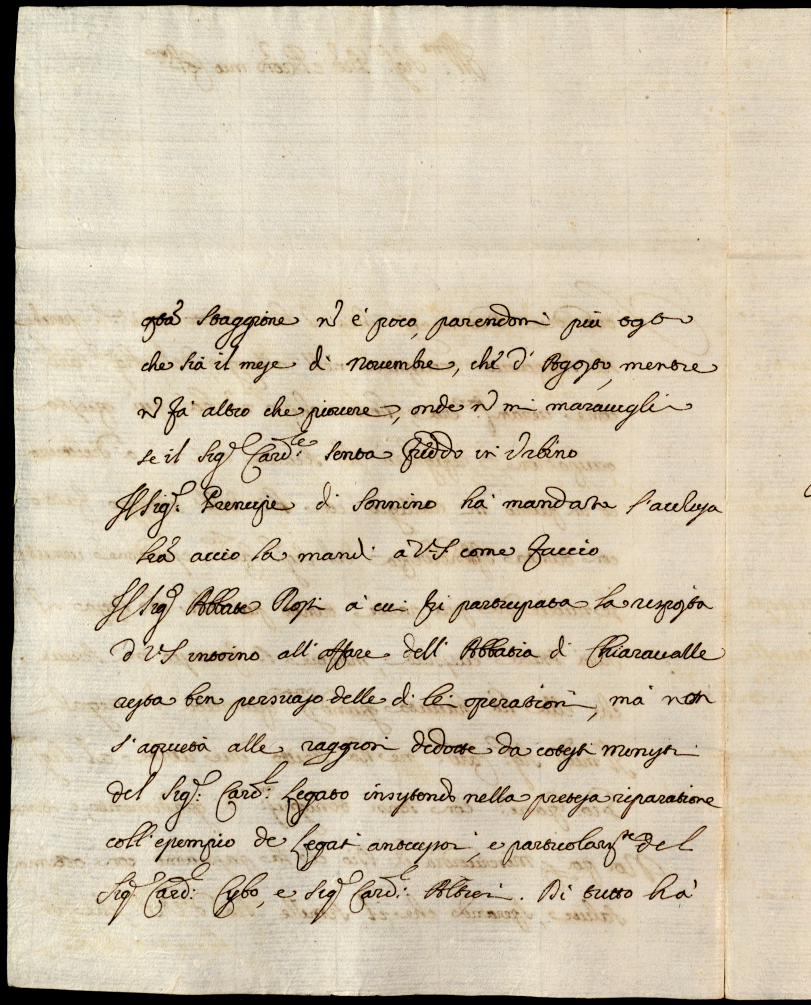 q.ta staggione n è poco, parendomi più tosto
che sia il mese di Novembre, che d'Agosto, mentre
n fà altro che piovere, onde n mi maraviglio
se il Sig.r Card.le senta freddo in Urbino
Il Sig.r Prencipe di Sonnino hà mandata l'acclusa
acciò la mandi a V.S come faccio
Il Sig.r Abbate Rosti à cui fù participata la risposta
di V.S intorno all'affare dell'Abbatia di Chiaravalle
resta ben persuaso delle di lei operationi, mà non
s'aquieta alle raggioni dedotte da cotesti ministri
del Sig.r Card.l Legato insistendo nella pretesa riparatione
coll'esempio de Legati antecessori, e particolarm.te del
Sig.r Card.l Cybo, e Sig.r Card.l Altieri. Di tutto hà